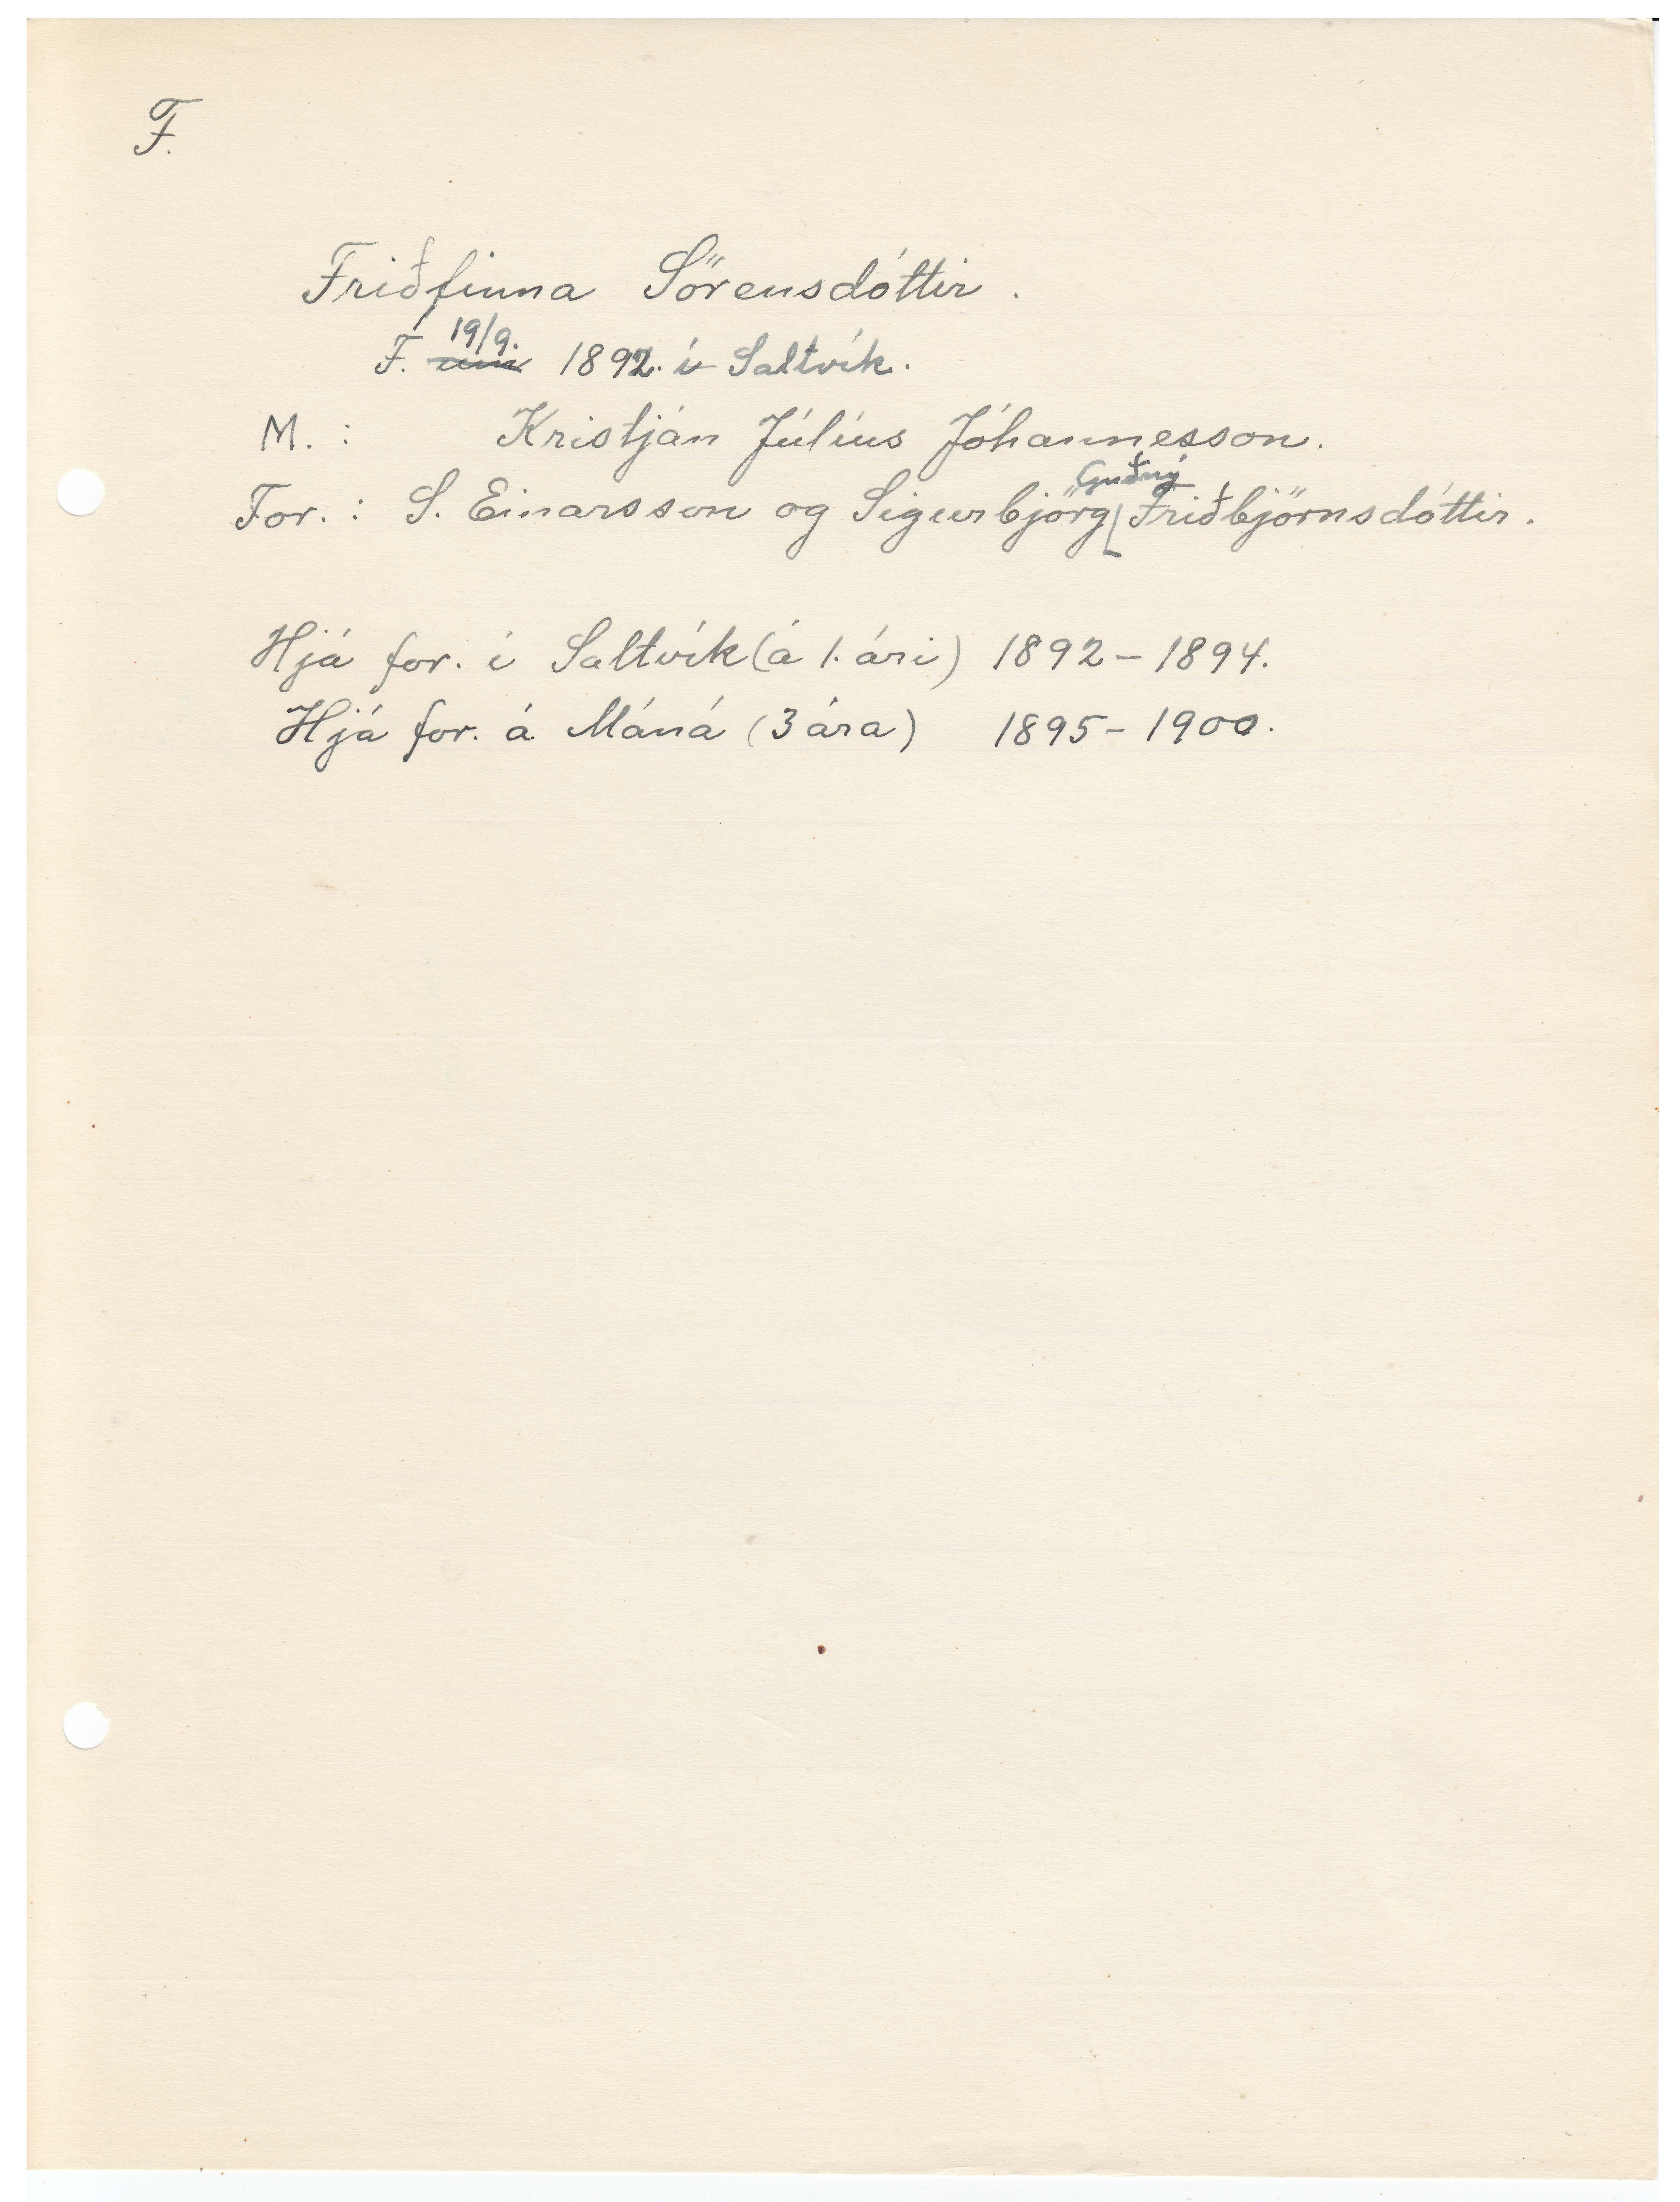 F.
Friðfinna Sörensdóttir.
F. 19/9. 1892. í Saltvík.
M. : Kristján Júlíus Jóhannesson.
For. : S. Einarsson og Sigurbjörg Guðný Friðbjörnsdóttir.
Hjá for. í Saltvík (á 1. ári) 1892 - 1894.
Hjá for. á Máná (3 ára) 1895 - 1900.